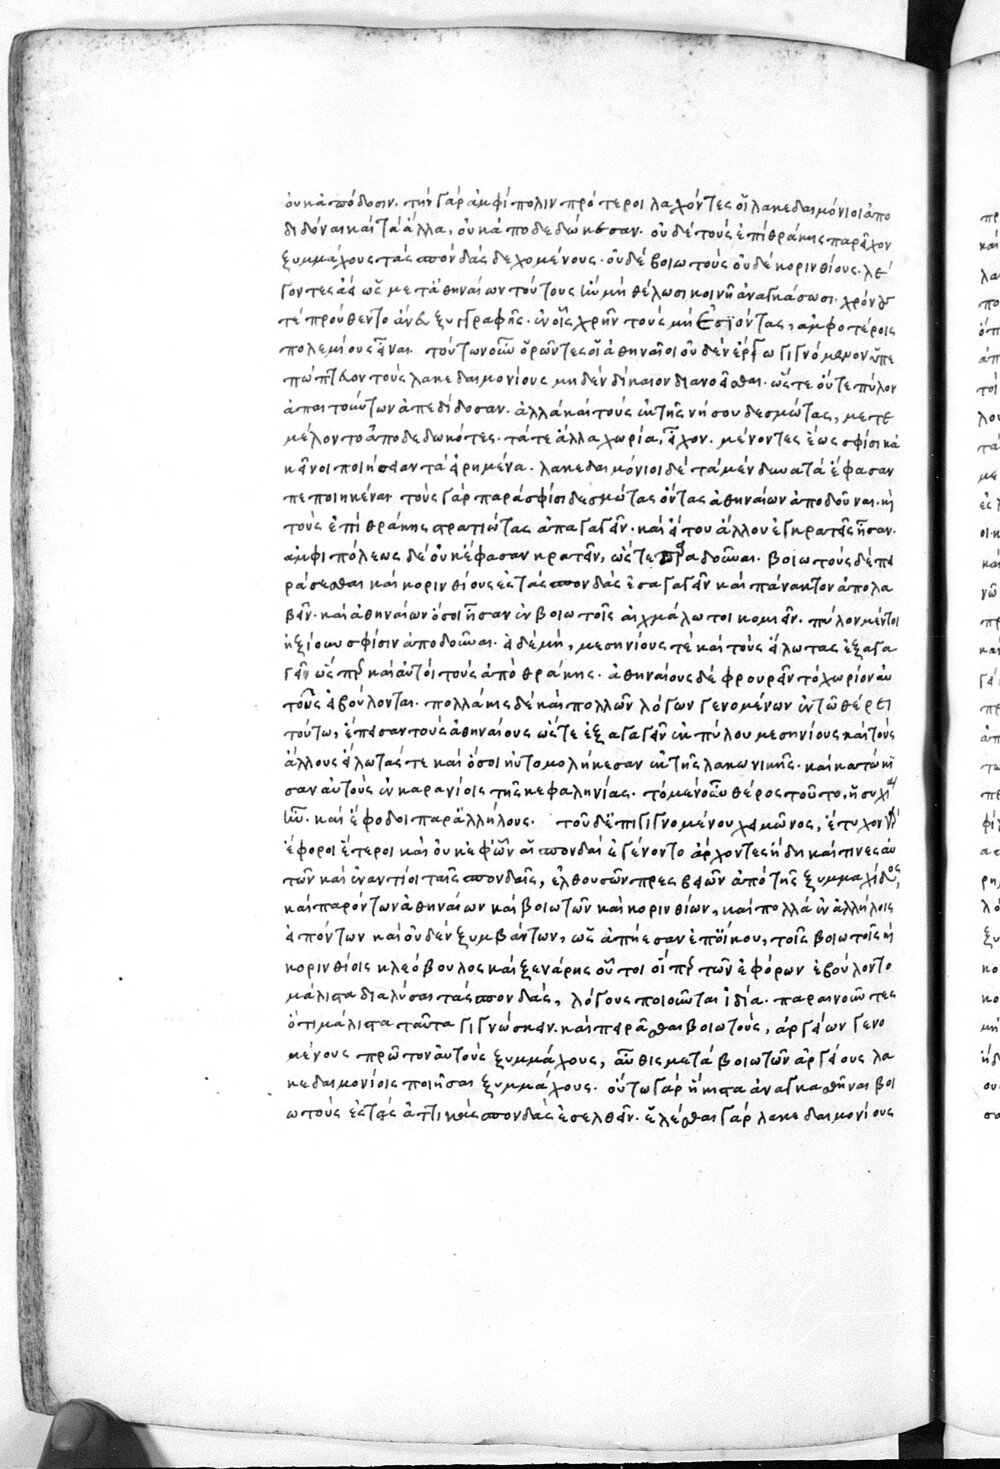 οὐκ ἀπόδοσιν. τὴν γὰρ ἀμφίπολιν πρότεροι λαχόντες οἱ λακεδαιμόνιοι ἀπο
διδόναι καὶ τὰ ἄλλα, οὐκ ἀποδεδώκεσαν. οὐδὲ τοὺς ἐπὶ θράκης παρεῖχον
ξυμμάχους τὰς σπονδὰς δεχομένους. οὐδὲ βοιωτοὺς οὐδὲ κορινθίους. λέ
γοντες ἀεὶ ὡς μετ' ἀθηναίων τούτους ἢν μὴ θέλωσι κοινῇ ἀναγκάσωσι. χρόνους
τὲ προύθεντο ἄνευ ξυγγραφῆς. ἐν οἷς χρῆν τοὺς μὴ ἐσιόντας, ἀμφοτέροις
πολεμίους εἶναι. τούτων οὖν ὁρῶντες οἱ ἀθηναῖοι οὐδὲν ἔργω γιγνόμενον ὑπε
τώπτευον τοὺς λακεδαιμονίους μηδὲν δίκαιον διανοεῖσθαι. ὥστε οὔτε πύλον
ἀπαιτούντων ἀπεδίδοσαν. ἀλλὰ καὶ τοὺς ἐκ τῆς νήσου δεσμώτας, μετε
μέλοντο ἀποδεδωκότες. τά τε ἄλλα χωρία, εἶχον. μένοντες ἕως σφίσι κἀ
κεῖνοι ποιήσειαν τὰ εἰρημένα. λακεδαιμόνιοι δὲ τὰ μὲν δυνατὰ ἔφασαν
πεποιηκέναι τοὺς γὰρ παρὰ σφίσι δεσμώτας ὄντας ἀθηναίων ἀποδοῦναι. κὶ
τοὺς ἐπὶ θράκης στρατιώτας ἀπαγαγεῖν. καὶ εἴ του ἄλλου ἐγκρατεῖς ἦσαν.
ἀμφιπόλεως δὲ οὐκ ἔφασαν κρατεῖν, ὥστε παραδοῦναι. βοιωτοὺς δὲ πει
ράσεσθαι καὶ κορινθίους ἐς τὰς σπονδὰς ἐσαγαγεῖν καὶ πάνακτον ἀπολα
βεῖν. καὶ ἀθηναίων ὅσοι ἦσαν ἐν βοιωτοῖς αἰχμάλωτοι κομιεῖν. πύλον μέντοι
ἠξίουν σφίσιν ἀποδοῦναι. εἰ δὲ μὴ, μεσηνίους τὲ καὶ τοὺς εἵλωτας ἐξαγα
γεῖν ὥσπερ καὶ αὐτοὶ τοὺς ἀπὸ θράκης. ἀθηναίους δὲ φρουρεῖν τὸ χωρίον αὐ
τοὺς εἰ βούλονται. πολλάκις δὲ καὶ πολλῶν λόγων γενομένων ἐν τῶ θέρει
τούτω, ἔπεισαν τοὺς ἀθηναίους ὥστε ἐξαγαγεῖν ἐκ πύλου μεσηνίους καὶ τοὺς
ἄλλους εἵλωτάς τε καὶ ὅσοι ηὐτομολήκεσαν ἐκ τῆς λακωνικῆς. καὶ κατώκι
σαν αὐτοὺς ἐν κρανίοις τῆς κεφαληνίας. τὸ μὲν οὖν θέρος τοῦτο, ἡσυχία
ἦν. καὶ ἔφοδοι παρ' ἀλλήλους. τοῦ δ' ἐπιγιγνομένου χειμῶνος, ἔτυχον γὰρ
ἔφοροι ἕτεροι καὶ οὐκ ἐφ' ὧν αἱ σπονδαὶ ἐγένοντο ἄρχοντες ἤδη καί τινες αὐ
τῶν καὶ ἐναντίοι ταῖς σπονδαῖς, ἐλθουσῶν πρεσβειῶν ἀπὸ τῆς ξυμμαχίδος,
καὶ παρόντων ἀθηναίων καὶ βοιωτῶν καὶ κορινθίων, καὶ πολλὰ ἐν ἀλλήλοις
εἰπόντων καὶ οὐδὲν ξυμβάντων, ὡς ἀπῄεσαν ἐπ' οἴκου, τοῖς βοιωτοῖς κὶ
κορινθίοις κλεόβουλος καὶ ξενάρης οὗτοι οἵπερ τῶν ἐφόρων ἐβούλοντο
μάλιστα διαλῦσαι τὰς σπονδὰς, λόγους ποιοῦνται ἰδία. παραινοῦντες
ὅτι μάλιστα ταῦτα γιγνώσκειν. καὶ πειρᾶσθαι βοιωτοὺς, ἀργείων γενο
μένους πρῶτον αὐτοὺς ξυμμάχους, αὖθις μετὰ βοιωτῶν ἀργείους λα
κεδαιμονίοις ποιῆσαι ξυμμάχους. οὕτω γὰρ ἥκιστα ἀναγκασθῆναι βοι
ωτοὺς ἐς τὰς ἀττικὰς σπονδὰς ἐσελθεῖν. ἑλέσθαι γὰρ λακεδαιμονίους